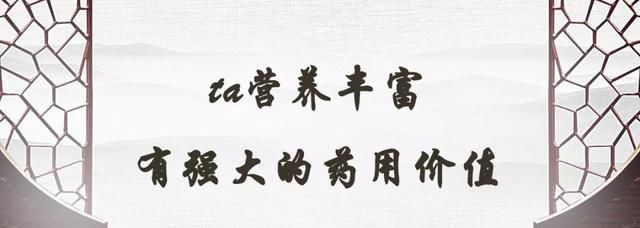 ta营养丰富
有强大的药用价值